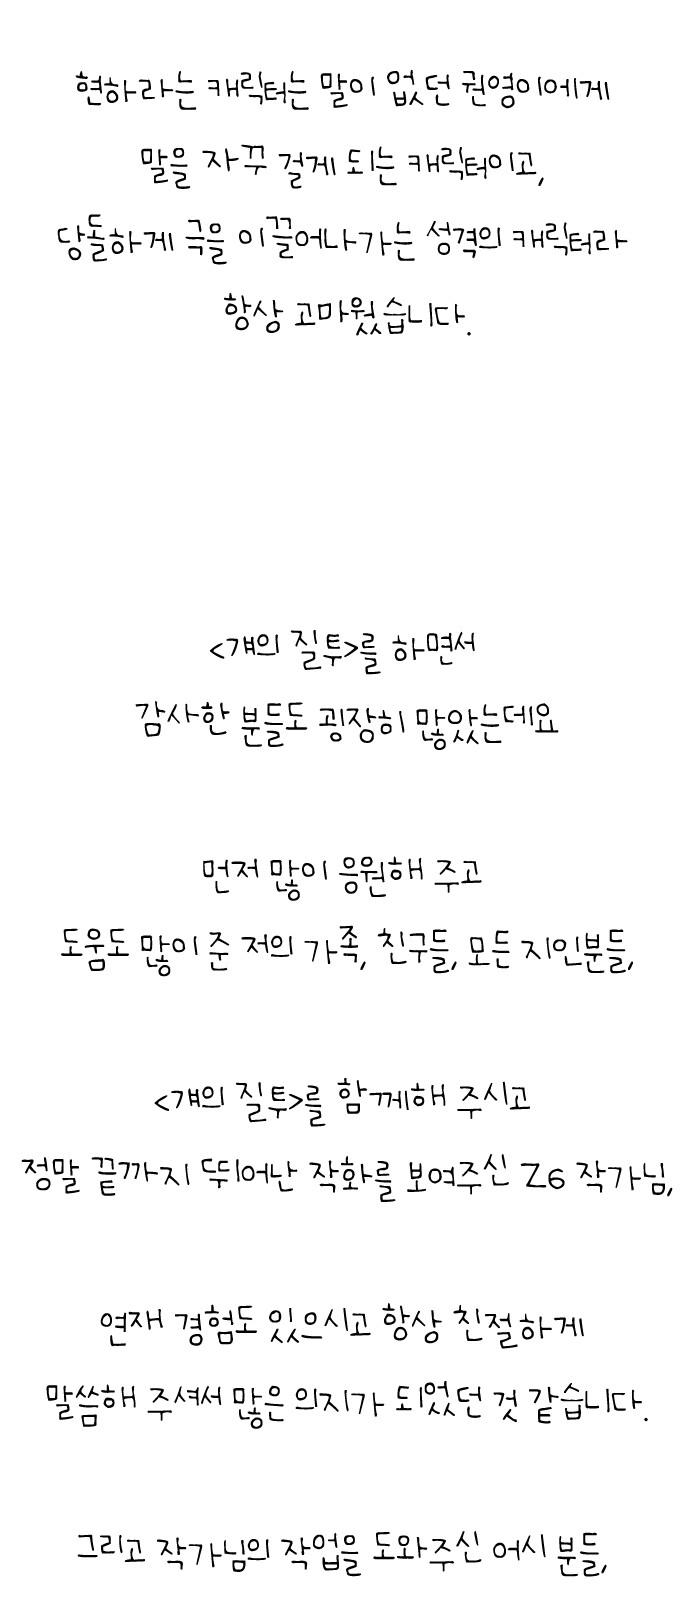 현하라는 캐릭터는 말이 없던 권영이에게
말을 자꾸 걸게 되는 캐릭터이고,
당돌하게 극을 이끌어나가는 성격의 캐릭터라
항상 고마웠습니다.
<걔의 질투>를 하면서
감사한 분들도 굉장히 많았는데요
먼저 많이 응원해 주고
도움도 많이 준 저의 가족, 친구들, 모든 지인분들,
<걔의 질투>를 함께해 주시고
정말 끝까지 뚜어난 작화를 보여주신 Z6 작가님,
연재 경험도 있으시고 항상 친절하게
말씀해 주셔서 많은 의지가 되었던 것 같습니다.
그리고 작가님의 작업을 도와주신 어시 분들,